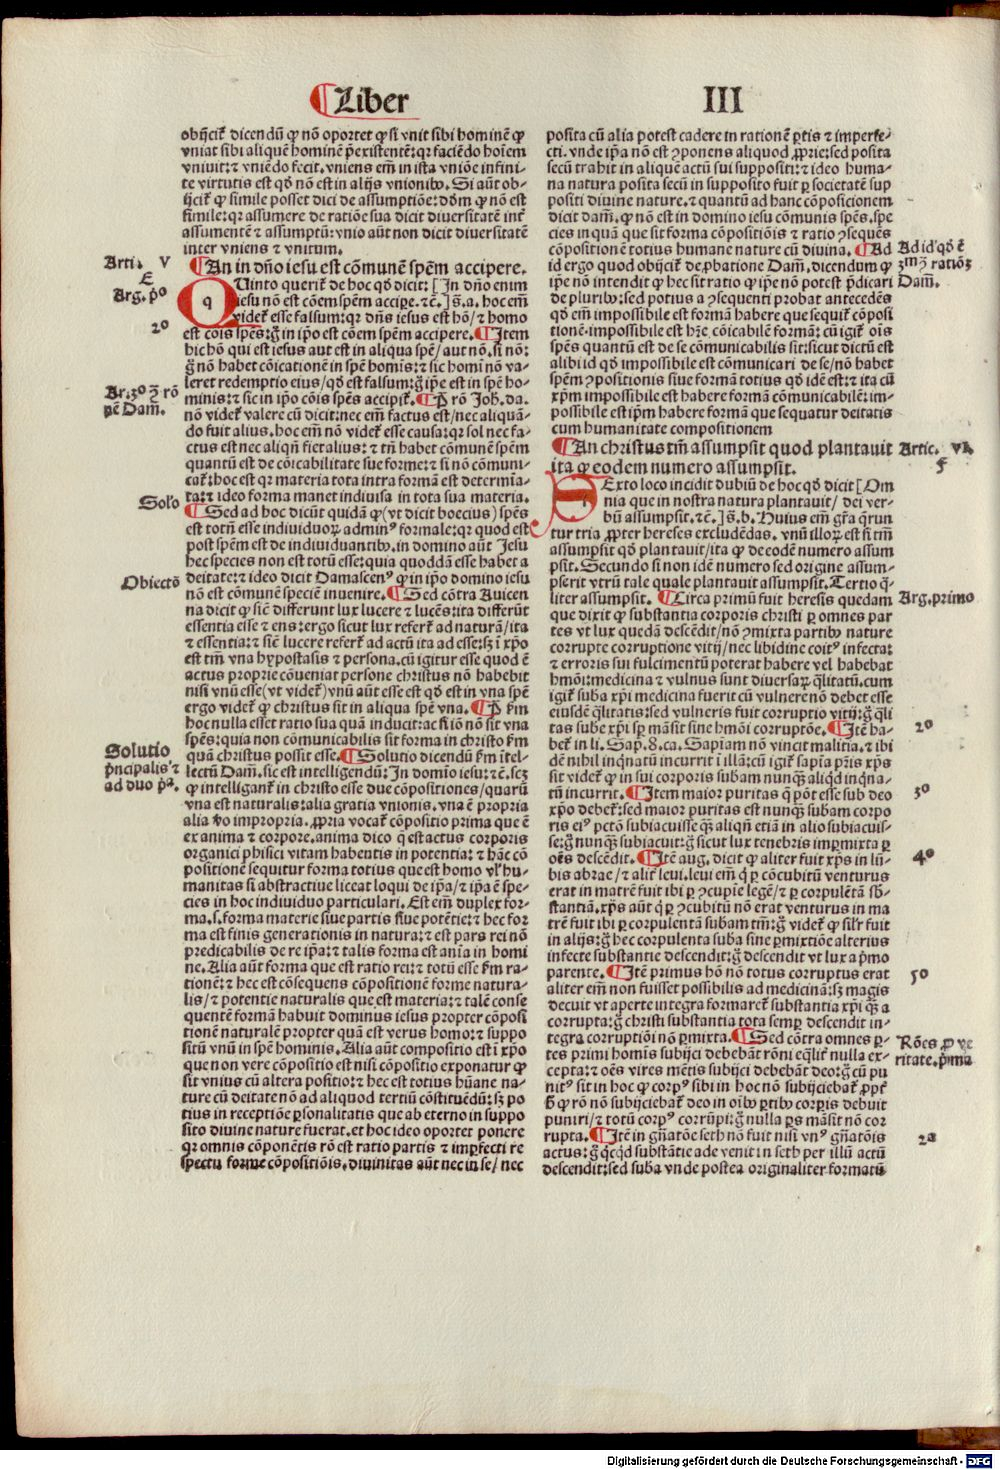 ¶Liber
III
obijcit̃ dicendũ ꝙ nõ oportet ꝙ si vnit sibi hominẽ ꝙ
vniat sibi aliquẽ hominẽ p̃existentẽ: qr faciẽdo hoĩem
vniuit: ⁊ vniẽdo fecit. vniens em̃ in ista vniõe infini-
te virtutis est qđ nõ est in alijs vnionibꝰ. Si aũt ob-
ijcit̃ ꝙ simile posset dici de assumptiõe: dõm ꝙ nõ est
simile: qr assumere de ratiõe sua dicit diuersitatẽ int̃
assumentẽ ⁊ assumptũ: vnio aũt non dicit diuersitatẽ
inter vniens ⁊ vnitum.
Arti. V
¶An in dño iesu est cõmunẽ spẽm accipere.
E
Arg. pᵒ
Quinto querit̃ de hoc qđ dicit: [In dño enim
iesu nõ est cõem spẽm accipe. ⁊c̃.] s̃. a. hoc em̃
videt̃ esse falsum: qr dñs iesus est hõ/ ⁊ homo
2ᵒ
est cõis spẽs: g̃ in ipo est cõem spẽm accipere. ¶Item
hic hõ qui est iesus aut est in aliqua spẽ/ aut nõ. si nõ:
g̃ nõ habet cõicationẽ in spẽ homis: ⁊ sic homĩ nõ va-
leret redemptio eius/ qđ est falsum: g̃ ip̃e est in spẽ ho-
Ar. 3ᵒ ꝯ̃ rõ
nẽ Dam̃.
minis: ⁊ sic in ipo cõis spẽs accipit̃. ¶P̃ rõ Joh. da.
nõ videt̃ valere cũ dicit: nec em̃ factus est/ nec aliquã-
do fuit alius. hoc em̃ nõ videt̃ esse causa: qr sol nec fa-
ctus est nec aliqñ fiet alius: ⁊ tñ habet cõmunẽ spẽm
quantũ est de cõicabilitate sue forme: ⁊ si nõ cõmuni-
cat̃: hoc est qr materia tota intra formã est determĩa-
ta: ⁊ ideo forma manet indiuisa in tota sua materia.
Solᵒo
¶Sed ad hoc dicũt quidã ꝙ (vt dicit boecius) spẽs
est totũ esse indiuiduoꝝ adminꝰ formale: qr quod est
post spẽm est de indiuiduantibꝰ. in domino aũt Jesu
hec species non est totũ esse: quia quoddã esse habet a
deitate: ⁊ ideo dicit Damascenꝰ ꝙ in ipo domino iesu
Obiectõ
nõ est cõmunẽ speciẽ inuenire. ¶Sed cõtra Auicen
na dicit ꝙ siẽ differunt lux lucere ⁊ lucẽs: ita differũt
essentia esse ⁊ ens: ergo sicut lux refert̃ ad naturã/ ita
⁊ essentia: ⁊ siẽ lucere refert̃ ad actũ ita ad esse: sꝫ ĩ xp̃o
est tm̃ vna hypostasis ⁊ persona. cũ igitur esse quod ẽ
actus proprie cõueniat persone christus nõ habebit
nisi vnũ esse (vt videt̃) vnũ aũt esse est qđ est in vna spẽ
ergo videt̃ ꝙ christus sit in aliqua spẽ vna. ¶P̃ ẜm
hoc nulla esset ratio sua quã inducit: ac si iõ nõ sit vna
spẽs: quia non cõmunicabilis sit forma in christo ẜm
Solutio
p̃ncipalis ⁊
ad duo p̃ª.
quã christus possit esse. ¶Solutio dicendũ ẜm ĩtel-
lectũ Dam̃. sic est intelligendũ: In domĩo iesu: ⁊c̃. scꝫ
ꝙ intelligant̃ in christo esse due cõpositiones/ quarũ
vna est naturalis: alia gratia vnionis. vna ẽ propria
alia ṽo impropria. ꝓpria vocat̃ cõpositio prima que ẽ
ex anima ⁊ corpore. anima dico q̃ est actus corporis
organici phisici vitam habentis in potentia: ⁊ hãc cõ
positionẽ sequitur forma totius que est homo vl̃ hu-
manitas si abstractiue liceat loqui de ip̃a/ ⁊ ip̃a ẽ spe-
cies in hoc indiuiduo particulari. Est em̃ duplex for-
ma. s. forma materie siue partis siue potẽtie: ⁊ hec for
ma est finis generationis in natura: ⁊ est pars rei nõ
predicabilis de re ip̃a: ⁊ talis forma est anĩa in homi
ne. Alia aũt forma que est ratio rei: ⁊ totũ esse ẜm ra-
tionẽ: ⁊ hec est cõsequens cõpositionẽ forme natura-
lis/ ⁊ potentie naturalis que est materia: ⁊ talẽ conse
quentẽ formã habuit dominus iesus propter cõposi
tionẽ naturalẽ propter quã est verus homo: ⁊ suppo
sitũ vnũ in spẽ hominis. Alia aũt compositio est ĩ xp̃o
que non vere cõpositio est nisi cõpositio exponatur ꝙ
sit vnius cũ altera positio: ⁊ hec est totius hũane na-
ture cũ deitate nõ ad aliquod tertiũ cõstituẽdũ: sꝫ po
tius in receptiõe ꝑsonalitatis que ab eterno in suppo
sito diuine nature fuerat. et hoc ideo oportet ponere
qr omnis cõponẽtis rõ est ratio partis ⁊ imꝑfecti re
spectu forme cõpositiõis. diuinitas aũt nec in se/ nec
posita cũ alia potest cadere in rationẽ ꝑtis ⁊ imperfe-
cti. vnde ip̃a nõ est ꝯponens aliquod ꝓprie: sed posita
secũ trahit in aliquẽ actũ sui suppositi: ⁊ ideo huma-
na natura posita secũ in supposito fuit ꝑ societatẽ sup
positi diuine nature. ⁊ quantũ ad hanc cõposicionem
dicit dam̃. ꝙ nõ est in domino iesu cõmunis spẽs. spe
cies in quã que sit forma cõpõsitiõis ⁊ ratio ꝯsequẽs
cõpõsitionẽ totius humane nature cũ diuina. ¶Ad
Ad id qđ ẽ
3m̃ ꝯ̃ rationẽ
Dam̃.
id ergo quod obijcit̃ de ꝓbatione Dam̃. dicendum ꝙ
ip̃e nõ intendit ꝙ hec sit ratio ꝙ ip̃e nõ potest p̃dicari
de pluribꝰ: sed potius a ꝯsequenti probat antecedẽs
qđ em̃ impossibile est formã habere que sequit̃ cõposi
tionẽ. impossibile est hr̃e cõicabilẽ formã: cũ igit̃ oĩs
spẽs quantũ est de se cõmunicabilis sit: sicut dictũ est
alibi id qđ impossibile est cõmunicari de se/ nõ habet
spẽm ꝯpositionis siue formã totius qđ idẽ est: ⁊ ita cũ
xp̃m impossibile est habere formã cõmunicabilẽ: im-
possibile est ip̃m habere formã que sequatur deitatis
cum humanitate compositionem
Artic. VI.
f
¶An christus tm̃ assumpsit quod plantauit
ita ꝙ eodem numero assumpsit.
SExto loco incidit dubiũ de hoc qđ dicit [Om
nia que in nostra natura plantauit/ dei ver-
bũ assumpsit. ⁊c̃.] s̃. b. Huius em̃ gr̃a q̃run
tur tria ꝓpter hereses excludẽdas. vnũ illoꝝ est si tm̃
assumpsit qđ plantauit/ ita ꝙ de eodẽ numero assum
psit. Secundo si non idẽ numero sed origine assum-
pserit vtrũ tale quale plantauit assumpsit. Tertio q̃-
Arg. primo
liter assumpsit. ¶Circa primũ fuit heresis quedam
que dixit ꝙ substantia corporis christi ꝑ omnes par
tes vt lux quedã descẽdit/ nõ ꝯmixta partibꝰ nature
corrupte corruptione vitij/ nec libidine coitꝰ infecta:
⁊ erroris sui fulcimentũ poterat habere vel habebat
hm̃õi: medicina ⁊ vulnus sunt diuersaꝝ q̃litatũ. cum
igit̃ suba xp̃i medicina fuerit cũ vulnere nõ debet esse
eiusdẽ q̃litatis: sed vulneris fuit corruptio vitij: g̃ q̃li
2ᵒ
tas sube xp̃i sꝑ mãsit sine hm̃õi corruptõe. ¶Itẽ ha-
bet̃ in li. Sap̃. 8. ca. Sapiãm nõ vincit malitia. ⁊ ibi
dẽ nihil inqnatũ incurrit ĩ illã: cũ igit̃ sapĩa p̃ris xp̃s
sit videt̃ ꝙ in sui corporis subam nunqꝫ aliqđ inqna-
3ᵒ
tũ incurrit. ¶Item maior puritas q̃ põt esse sub deo
xp̃o debet̃: sed maior puritas est nunqꝫ subam corpo
ris eiꝰ pctõ subiacuisse qꝫ aliqñ etiã in alio subiacuis-
se: g̃ nunqꝫ subiacuit: g̃ sicut lux tenebris imꝑmixta ꝑ
4ᵒ
oẽs descẽdit. ¶Itẽ aug. dicit ꝙ aliter fuit xp̃s in lũ-
bis abrae/ ⁊ alit̃ leui. leui em̃ q̃ ꝑ cõcubitũ venturus
erat in matrẽ fuit ibi ꝑ ꝯcupiẽ legẽ/ ⁊ ꝑ corpulẽtã sb̃-
stantiã. xp̃s aũt q̃ ꝑ ꝯcubitũ nõ erat venturus in ma
trẽ fuit ibi ꝑ corpulentã subam tm̃: g̃ videt̃ ꝙ sil̃r fuit
in alijs: g̃ hec corpulenta suba sine ꝑmixtiõe alterius
infecte substantie descendit: g̃ descendit vt lux a p̃mo
5ᵒ
parente. ¶Itẽ primus hõ nõ totus corruptus erat
aliter em̃ non fuisset possibilis ad medicinã: sꝫ magis
decuit vt aperte integra formaret̃ substantia xp̃i qꝫ a
corrupta: g̃ christi substantia tota semꝑ descendit in-
Rões ꝓ ve
ritate. p̃ma
tegra corruptiõi nõ ꝑmixta. ¶Sed cõtra omnes ꝑ-
tes primi homis subijci debebãt rõni eq̃lit̃ nulla ex-
cepta: ⁊ oẽs vires mẽtis subijci debebãt deo: g̃ cũ pu
nitꝰ sit in hoc ꝙ corpꝰ sibi in hoc nõ subijciebat̃ ꝓpt̃
h̃ ꝙ rõ nõ subijciebat̃ deo in oĩbꝰ ꝑtibꝰ corꝑis debuit
puniri/ ⁊ totũ corpꝰ corrũpi: g̃ nulla ꝑs mãsit nõ cor
2ª
rupta. ¶Itẽ in gñatõe seth nõ fuit nisi vnꝰ gñatõis
actus: g̃ qcqd substãtie ade venit in seth per illũ actũ
descendit: sed suba vnde postea originaliter formatũ
Digitalisierung gefördert durch die Deutsche Forschungsgemeinschaft - DFG